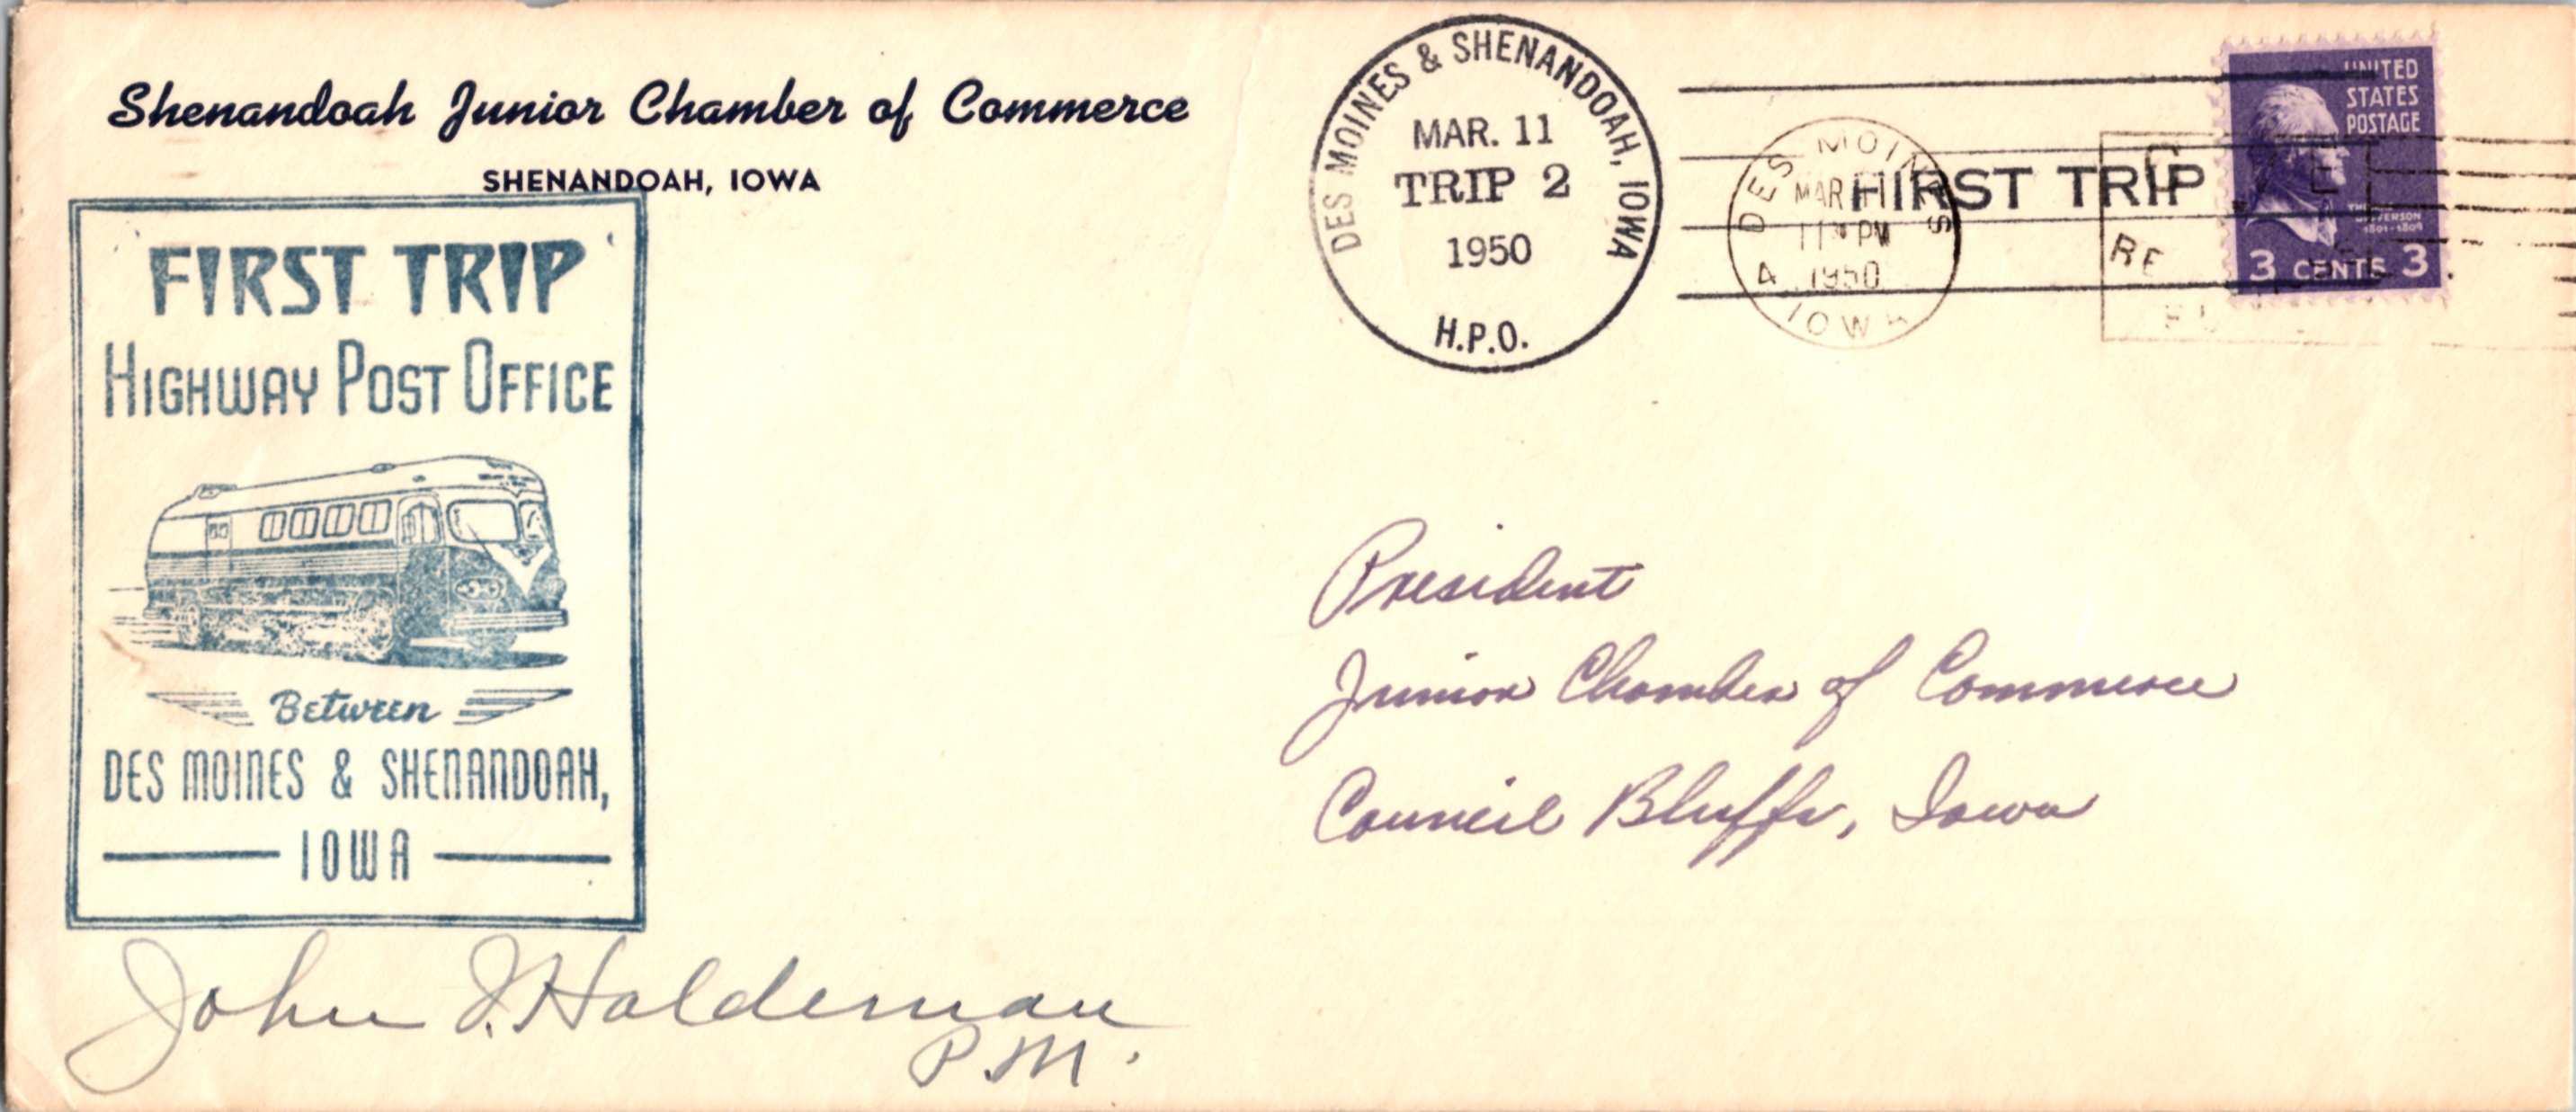 Shenandoah Junior Chamber of Commerce
SHENANDOAH, IOWA
FIRST TRIP
HIGHWAY POST OFFICE
Between
DES MOINES & SHENANDOAH,
IOWA
John J. Haldeman
P.M.
DES MOINES & SHENANDOAH, IOWA
MAR. 11
TRIP 2
1950
H.P.O.
FIRST TRIP
DES MOINES
MAR 11
11 PM
1950
IOWA
UNITED
STATES
POSTAGE
1801-1809
3 CENTS 3
President
Junior Chamber of Commerce
Council Bluffs, Iowa